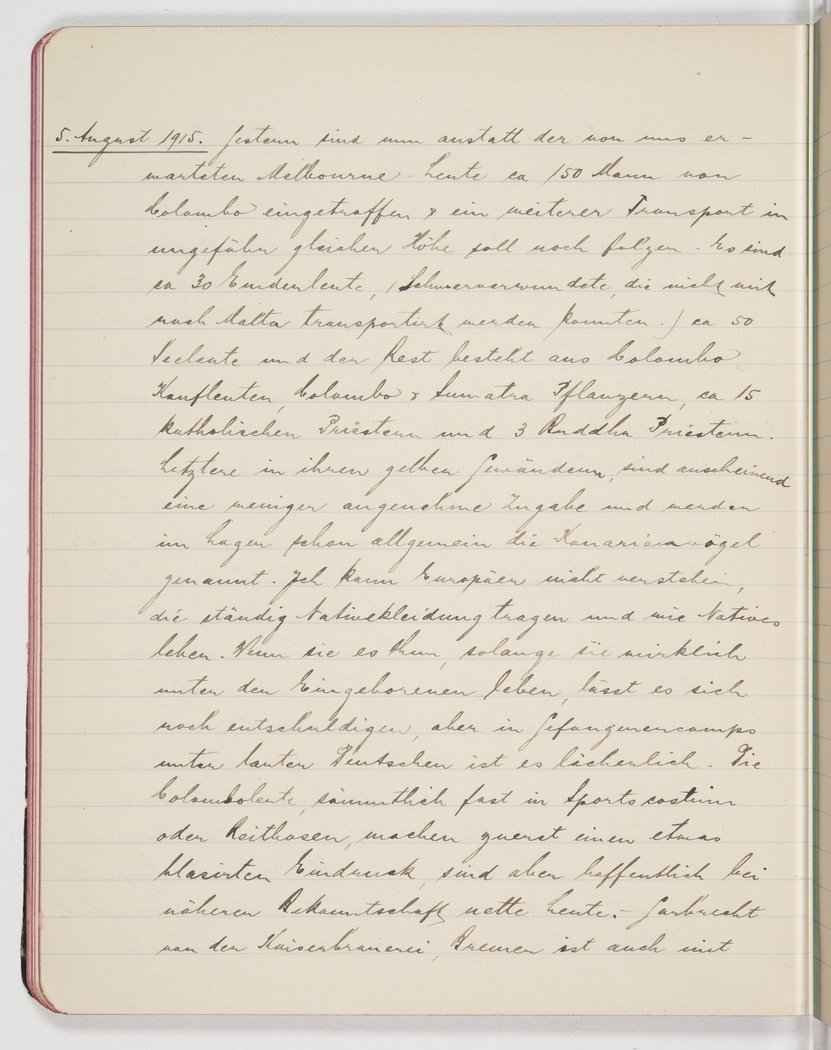 5. August 1915. Gestern sind nun anstatt der von uns er-
warteten Melbourne-Leute ca 150 Mann von
Colombo eingetroffen & ein weiterer Transport in
ungefähr gleicher Höhe soll noch folgen. Es sind
ca 30 Emdenleute, (Schwerverwundete, die nicht mit
nach Malta transportirt werden konnten.) ca 50
Seeleute und der Rest besteht aus Colombo
Kaufleuten, Colombo & Sumatra Pflanzern, ca 15
katholischen Priestern und 3 Buddha Priestern.
Letztere in ihren gelben Gewändern, sind anscheinend
eine weniger angenehme Zugabe und werden
im Lager schon allgemein die Kanarienvögel
genannt. Ich kann Europäer nicht verstehen,
die ständig Nativekleidung tragen und wie Natives
leben. Wenn sie es thun, solange sie wirklich
unter den Eingeborenen leben, lässt es sich
noch entschuldigen, aber in Gefangenencamps
unter lauter Deutschen ist es lächerlich. Die
Colomboleute, sämmtlich fast in Sportscostüm
oder Reithosen, machen zuerst einen etwas
blasirten Eindruck, sind aber hoffentlich bei
näherer Bekanntschaft nette Leute. - Garbrecht
von der Kaiserbrauerei, Bremen ist auch mit